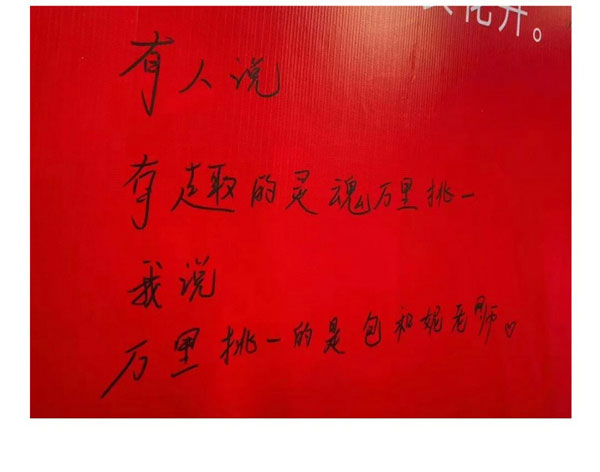 化开。
有人说
有趣的灵魂万里挑一
我说
万里挑一的是包和妮老师♡